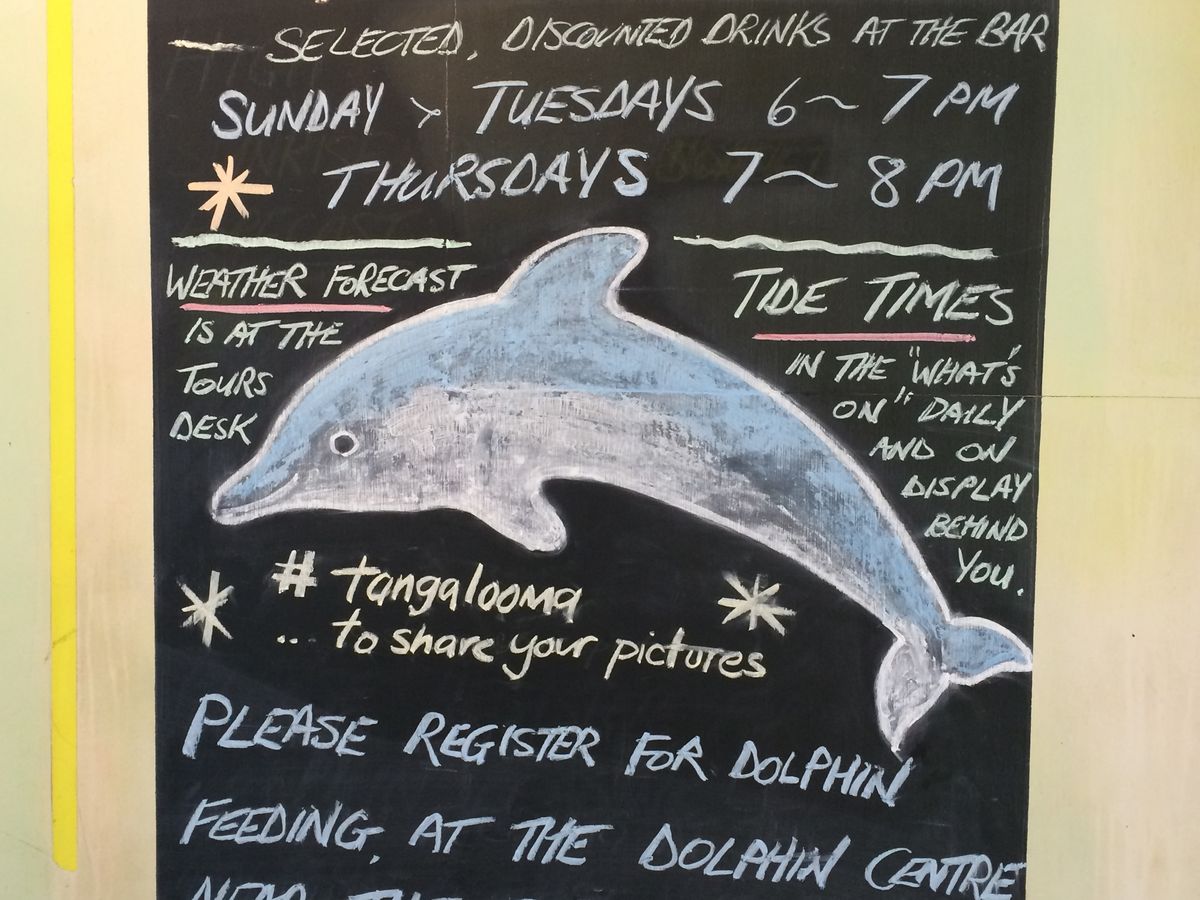 — SELECTED, DISCOUNTED DRINKS AT THE BAR
SUNDAY > TUESDAYS 6~7 PM
* THURSDAYS 7~8 PM
WEATHER FORECAST
IS AT THE
TOURS
DESK
TIDE TIMES
IN THE "WHAT'S
ON" DAILY
AND ON
DISPLAY
BEHIND
YOU.
# tangalooma
... to share your pictures
PLEASE REGISTER FOR DOLPHIN
FEEDING, AT THE DOLPHIN CENTRE
NEAR THE